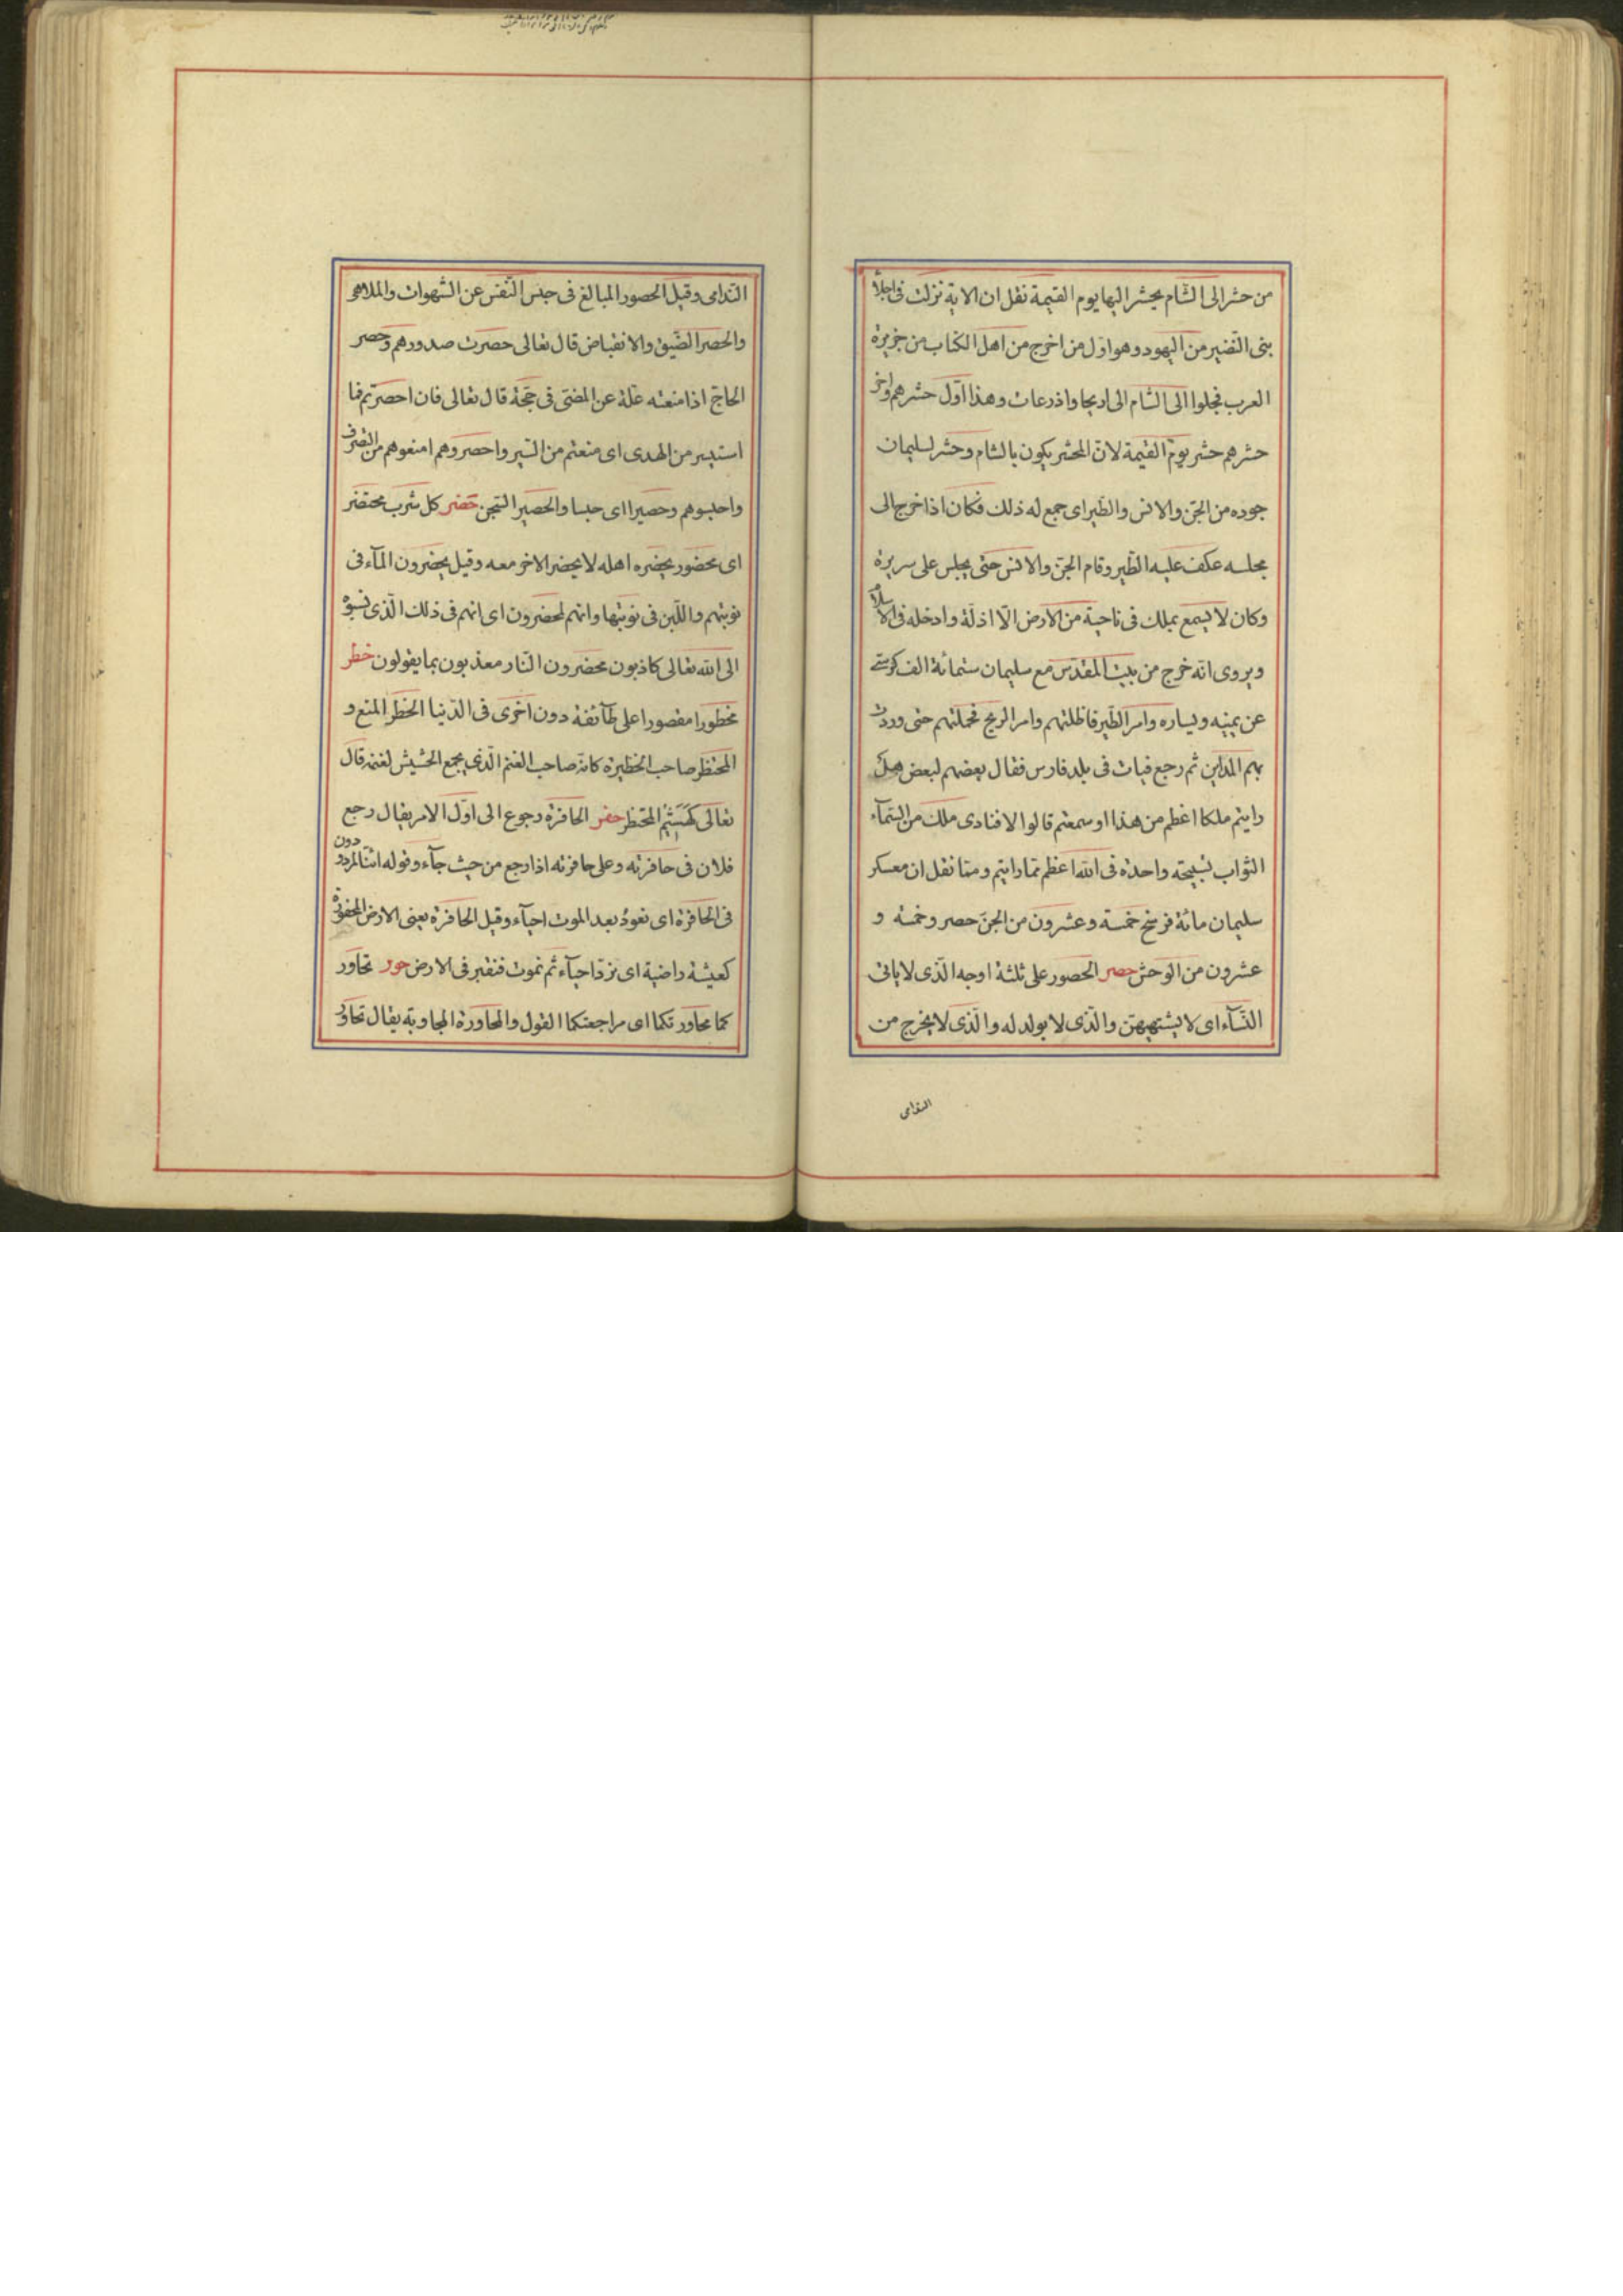 من حشر الى الشام يحشر اليها يوم القيمة نقل ان الاية نزلت فى اجلآء
بنى النضير من اليهود وهو اول من اخرج من اهل الكتاب من جزيرة
العرب فجلوا الى الشام الى اريحا واذرعات وهذا اول حشرهم واخر
حشرهم حشر يوم القيمة لان المحشر يكون بالشام وحشر لسليمان
جوده من الجن والانس والطير اى جمع له ذلك فكان اذا خرج الى
مجلسه عكف عليه الطير وقام الجن والانس حتى يجلس على سريرة
وكان لا يسمع بملك فى ناحية من الارض الا اذلة وادخله فى الاسلام
ويروى انه خرج من بيت المقدس مع سليمان ستمائة الف كرسى
عن يمينه ويساره وامر الطير فاظلتهم وامر الريح فحملتهم حتى وردت
بهم المداين ثم رجع فبات فى بلد فارس فقال بعضهم لبعض هل
رايتم ملكا اعظم من هذا او سمعتم قالوا لا فنادى ملك من السمآء
الثواب تسبيحته واحدة فى الله اعظم مما رايتم ومنا نقل ان معسكر
سليمان مائة فرسخ خمسة وعشرون من الجن حصر وخمسة و
عشرون من الوحش حصر الحصور على ثلثة اوجه الذى لا ياتى
النسآء اى لا يشتهيهن والذى لا يولد له والذى لا يخرج من
الندامى
الندامى وقيل الحصور المبالغ فى حبس النفس عن الشهوات والملاهى
والحصر الضيق والانقباض قال تعالى حصرت صدورهم وحصر
الحاج اذا منعته علة عن المضى فى حجة قال تعالى فان احصرتم فما
استيسر من الهدى اى منعتم من السير واحصروهم امنعوهم من التصرف
واحبسوهم وحصيرا اى حبسا والحصير السجن حضر كل شرب محتضر
اى محضور يحضره اهله لا يحضر الاخر معه وقيل يحضرون المآء فى
نوبتهم واللبن فى نوبتها وانهم لمحضرون اى انهم فى ذلك الذى نسبوه
الى الله تعالى كاذبون محضرون النار معذبون بما يقولون حظر
محظورا مقصورا على طآئفة دون اخرى فى الدنيا الحظر المنع و
المحتظر صاحب الحظيرة كانه صاحب الغنم الذى يجمع الحشيش لغنمه قال
تعالى كهشيم المحتظر حفر الحافرة رجوع الى اول الامر يقال رجع
فلان فى حافرته وعلى حافرته اذا رجع من حيث جآء وقوله ائنا لمردودون
فى الحافرة اى نعود بعد الموت احيآء وقيل الحافرة يعنى الارض المحفورة
كعيشة راضية اى نرد احيآء ثم نموت فنقبر فى الارض حور تحاور
كما محاورتكما اى مراجعتكما القول والمحاورة المجاوبة يقال تحاور